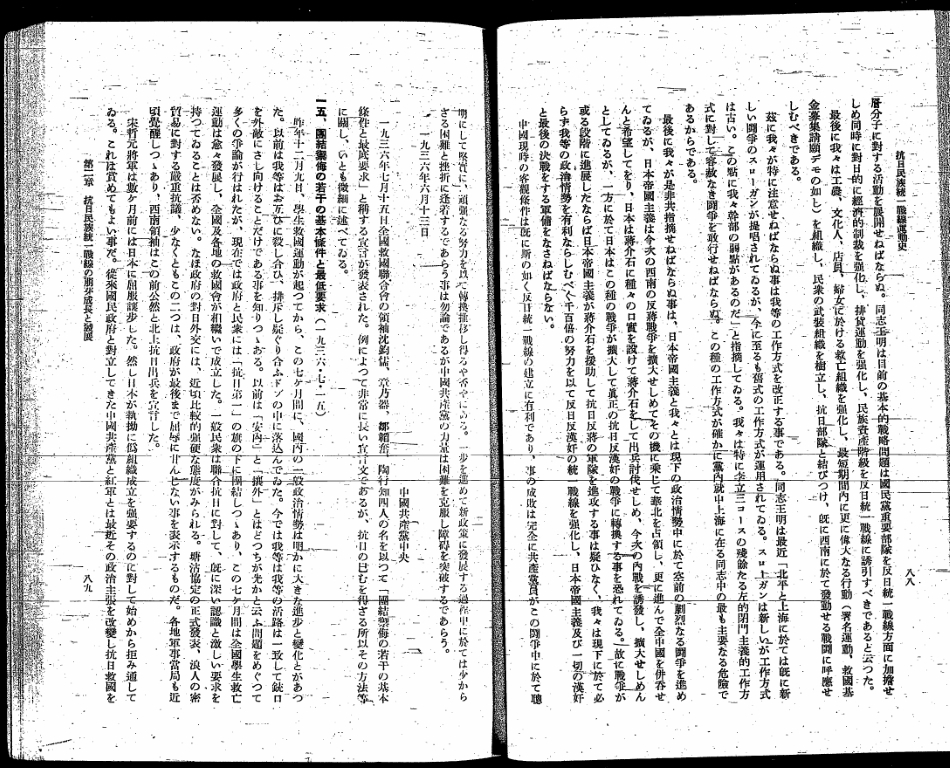 抗日民族統一戰線運動史
八八
層分子に對する活動を展開せねばならぬ。同志王明は目前の基本的戰略問題は國民黨重要部隊を反日統一戰線方面に加擔せ
しめ同時に對日的に經濟的制裁を強化し、排貨運動を強化し、民族資產階級を反日統一戰線に誘引すべきであると云つた。
最後に我々は工農、文化人、店員、婦女に於ける救亡組織を強化し、最短期間内に更に偉大なる行動（署名運動、救國基
金募集請願デモの如し）を組織し、民衆の武裝組織を樹立し、抗日部隊と結びつけ、既に西南に於て發動せる戰鬪に呼應せ
しむべきである。
茲に我々が特に注意せねばならぬ事は我等の工作方式を改正する事である。同志王明は最近「北平と上海に於ては既に新
しい鬪爭のスローガンが提唱されてゐるが、今に至るも舊式の工作方式が運用されてゐる。スローガンは新しいが工作方式
は古い。この點に我々幹部の弱點があるのだ」と指摘してゐる。我々は特に李立三コースの殘餘たる左的閉門主義的工作方
式に對して容赦なき鬪爭を敢行せねばならぬ。この種の工作方式が確かに黨内就中上海に在る同志中の最も主要なる危險で
あるからである。
最後に我々が是非共指摘せねばならぬ事は、日本帝國主義と我々とは現下の政治情勢中に於て空前の劇烈なる鬪爭を進め
てゐるが、日本帝國主義は今次の西南の反蔣戰爭を擴大せしめてその機に乘じて華北を占領し、更に進んで全中國を併呑せ
んと希望してをり、日本は蔣介石に種々の口實を設けて蔣介石をして出兵討伐せしめ、今次の内戰を誘發し、擴大せしめん
としてゐるが、一方に於て日本はこの種の戰爭が擴大して眞正の抗日反漢奸の戰爭に轉換する事を恐れてゐる。故に戰爭が
或る段階に進展したならば日本帝國主義が蔣介石を援助して抗日反蔣の軍隊を進攻する事は疑ひなく、我々は現下に於て必
らず我等の政治情勢を有利ならしむべく千百倍の努力を以て反日反漢奸の統一戰線を強化し、日本帝國主義及び一切の漢奸
と最後の決戰をする準備をなさねばならない。
中國現時の客觀條件は既に斯の如く反日統一戰線の建立に有利であり、事の成敗は完全に共產黨員がこの鬪爭中に於て聰
明にして堅實に、頑強なる努力を以て轉換推移し得るや否やにある。一歩を進めて新政策に發展する過程中に於ては少から
ざる困難と挫折に逢着するであらう事は勿論であるが中國共產黨の力量は困難を克服し障碍を突破するであらう。
一九三六年六月十三日
中國共產黨中央
一九三六年七月十五日全國救國聯合會の領袖沈鈞儒、章乃器、鄒韜奮、陶行知四人の名を以つて「團結禦侮の若干の基本
條件と最低要求」と稱する宣言が發表された。例によつて非常に長い宣言文であるが、抗日の已むを得ざる所以その方法等
に關し、いとも微細に述べてゐる。
一五、團結禦侮の若干の基本條件と最低要求（一九三六・七・一五）
昨年十二月九日、學生救國運動が起つてから、この七ヶ月間に、國内の一般政治情勢は明かに大きた進步と變化とがあつ
た。以前は我等はお互ひに殺し合ひ、排斥し疑ぐり合ふドブの中に落込んでゐた。今では我等は我等の活路は一致して銃口
を外敵にさし向けることだけである事を知りつゝある。以前は「安内」と「攘外」とはどつちが先かと云ふ問題をめぐつて
多くの爭論が行はれたが、現在では政府と民衆には「抗日第一」の旗の下に團結しつゝあり、この七ヶ月間は全國學生救亡
運動は愈々發展し、全國及各地の救國會が相繼いで成立した。一般民衆は聯合抗日に對して、既に深い認識と激しい要求を
持つてゐることは否めない。たゞ政府の對日外交には、近頃比較的强硬な態度がみられる。塘沽協定の正式發表、浪人の密
貿易に對する嚴重抗議、少なくともこの二つは、政府が最後まで屈辱に甘んじない事を表示するものだ。各地軍事當局も近
頃覺醒しつゝあり、西南領袖はこの前公然と北上抗日出兵を宣言した。
宋哲元將軍は數ヶ月前には日本に屈服讓步した。然し日本が執拗に僞組織成立を强要するのに對して始めから拒み通して
ゐる。これは賞めてもよい事だ。從來國民政府と對立してきた中國共產黨と紅軍とは最近その政治主張を改變し抗日救國を
第二章　抗日民族統一戰線の萠芽成長と發展
八九